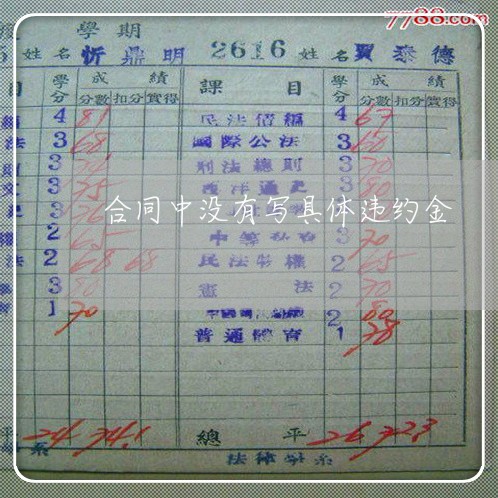 7788.com
學期
姓名 忻鼎明 2616 姓名 賈泰德
目 學分 成績 課目 學分 成績
分數 扣分 實得 分數 扣分 實得
4 81 民法債編 4 67
法 3 68 國際公法 3 60
3 刑法總則 3 70
3 75 西洋通史 3 80
3
合同中没有写具体违约金
2 65 3 70
法 2 68 68 民法物權 2 65
3 80 憲法 2 70
1 70 2 80
普通體育 1 78
平 24 74.1 總平 26 72.3
系 法律學系